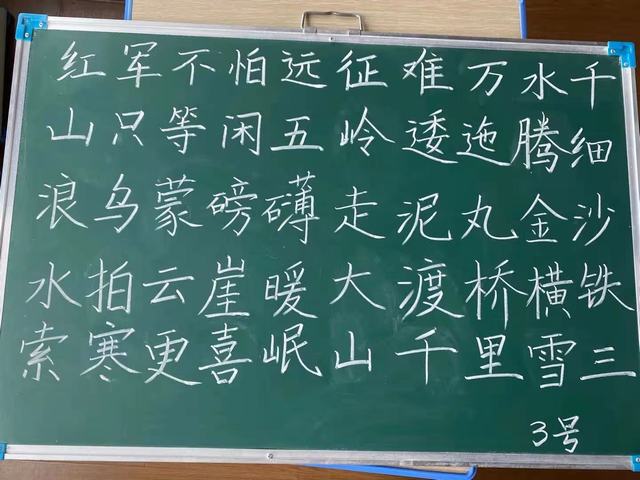 红军不怕远征难万水千
山只等闲五岭逶迤腾细
浪乌蒙磅礴走泥丸金沙
水拍云崖暖大渡桥横铁
索寒更喜岷山千里雪三
3号